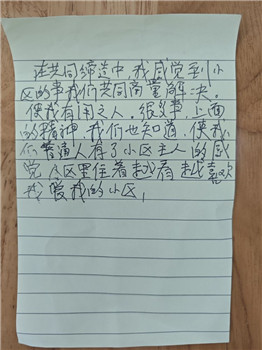 在共同缔造中,我感觉到小
区的事我们共同商量解决.
使我有用之人.很多事.上面
的精神.我们也知道.使我
们普通人有了小区主人的感
觉.小区里住着越有越喜欢
我爱我的小区,